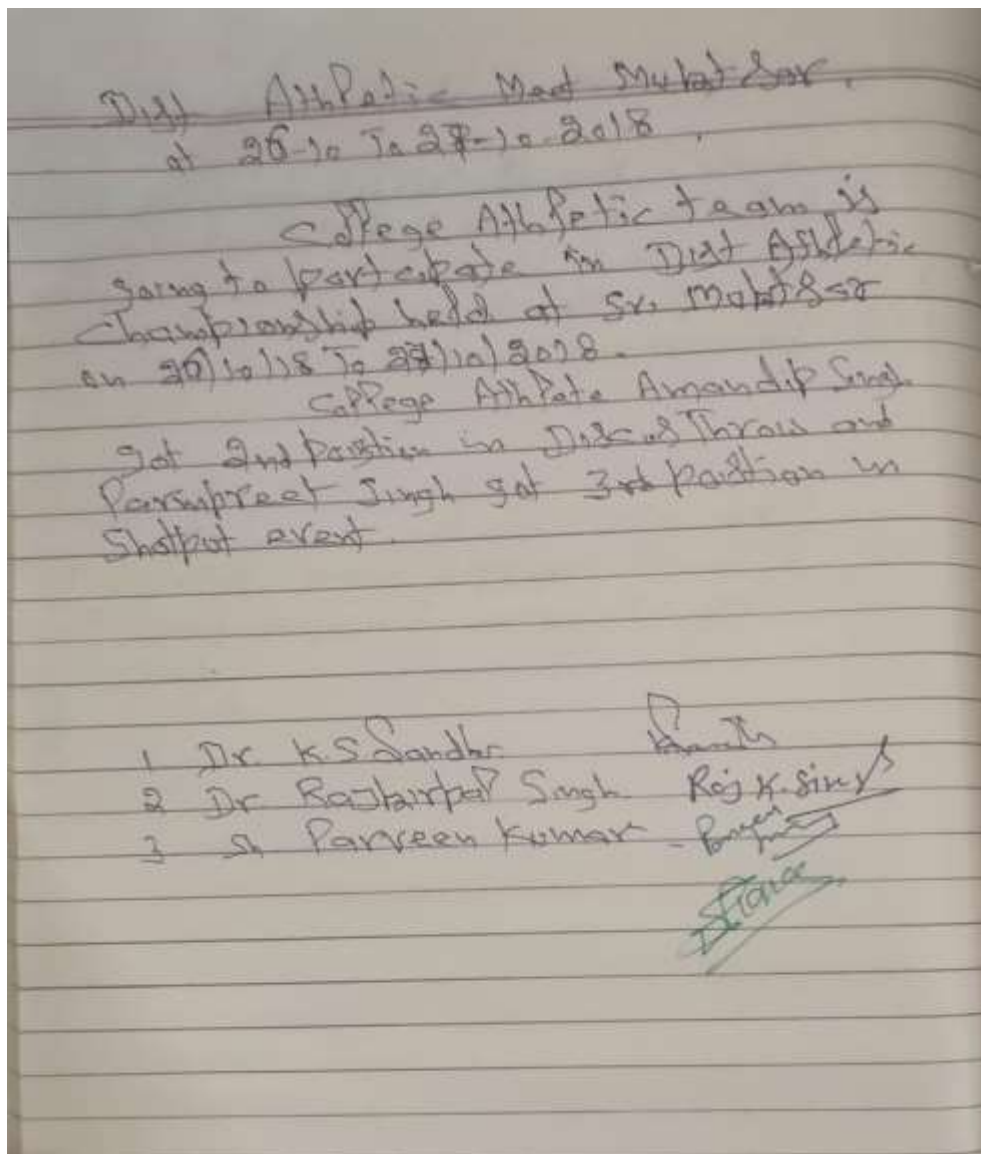 Distt Athletic Meet Mukat Sar.
at 26-10 To 27-10-2018.
College Athletic team is
going to partcipate in Distt Athletic
Championship held at Sri Mukt Sar
on 26/10/18 To 27/10/2018.
College Athlete Amandip Singh
got 2nd Position in Discus Throw and
Parmpreet Singh got 3rd Position in
Shotput event.
1 Dr. K.S Sandhu
2 Dr Rajbirpal Singh Raj K. Singh
3 Sh Parveen Kumar